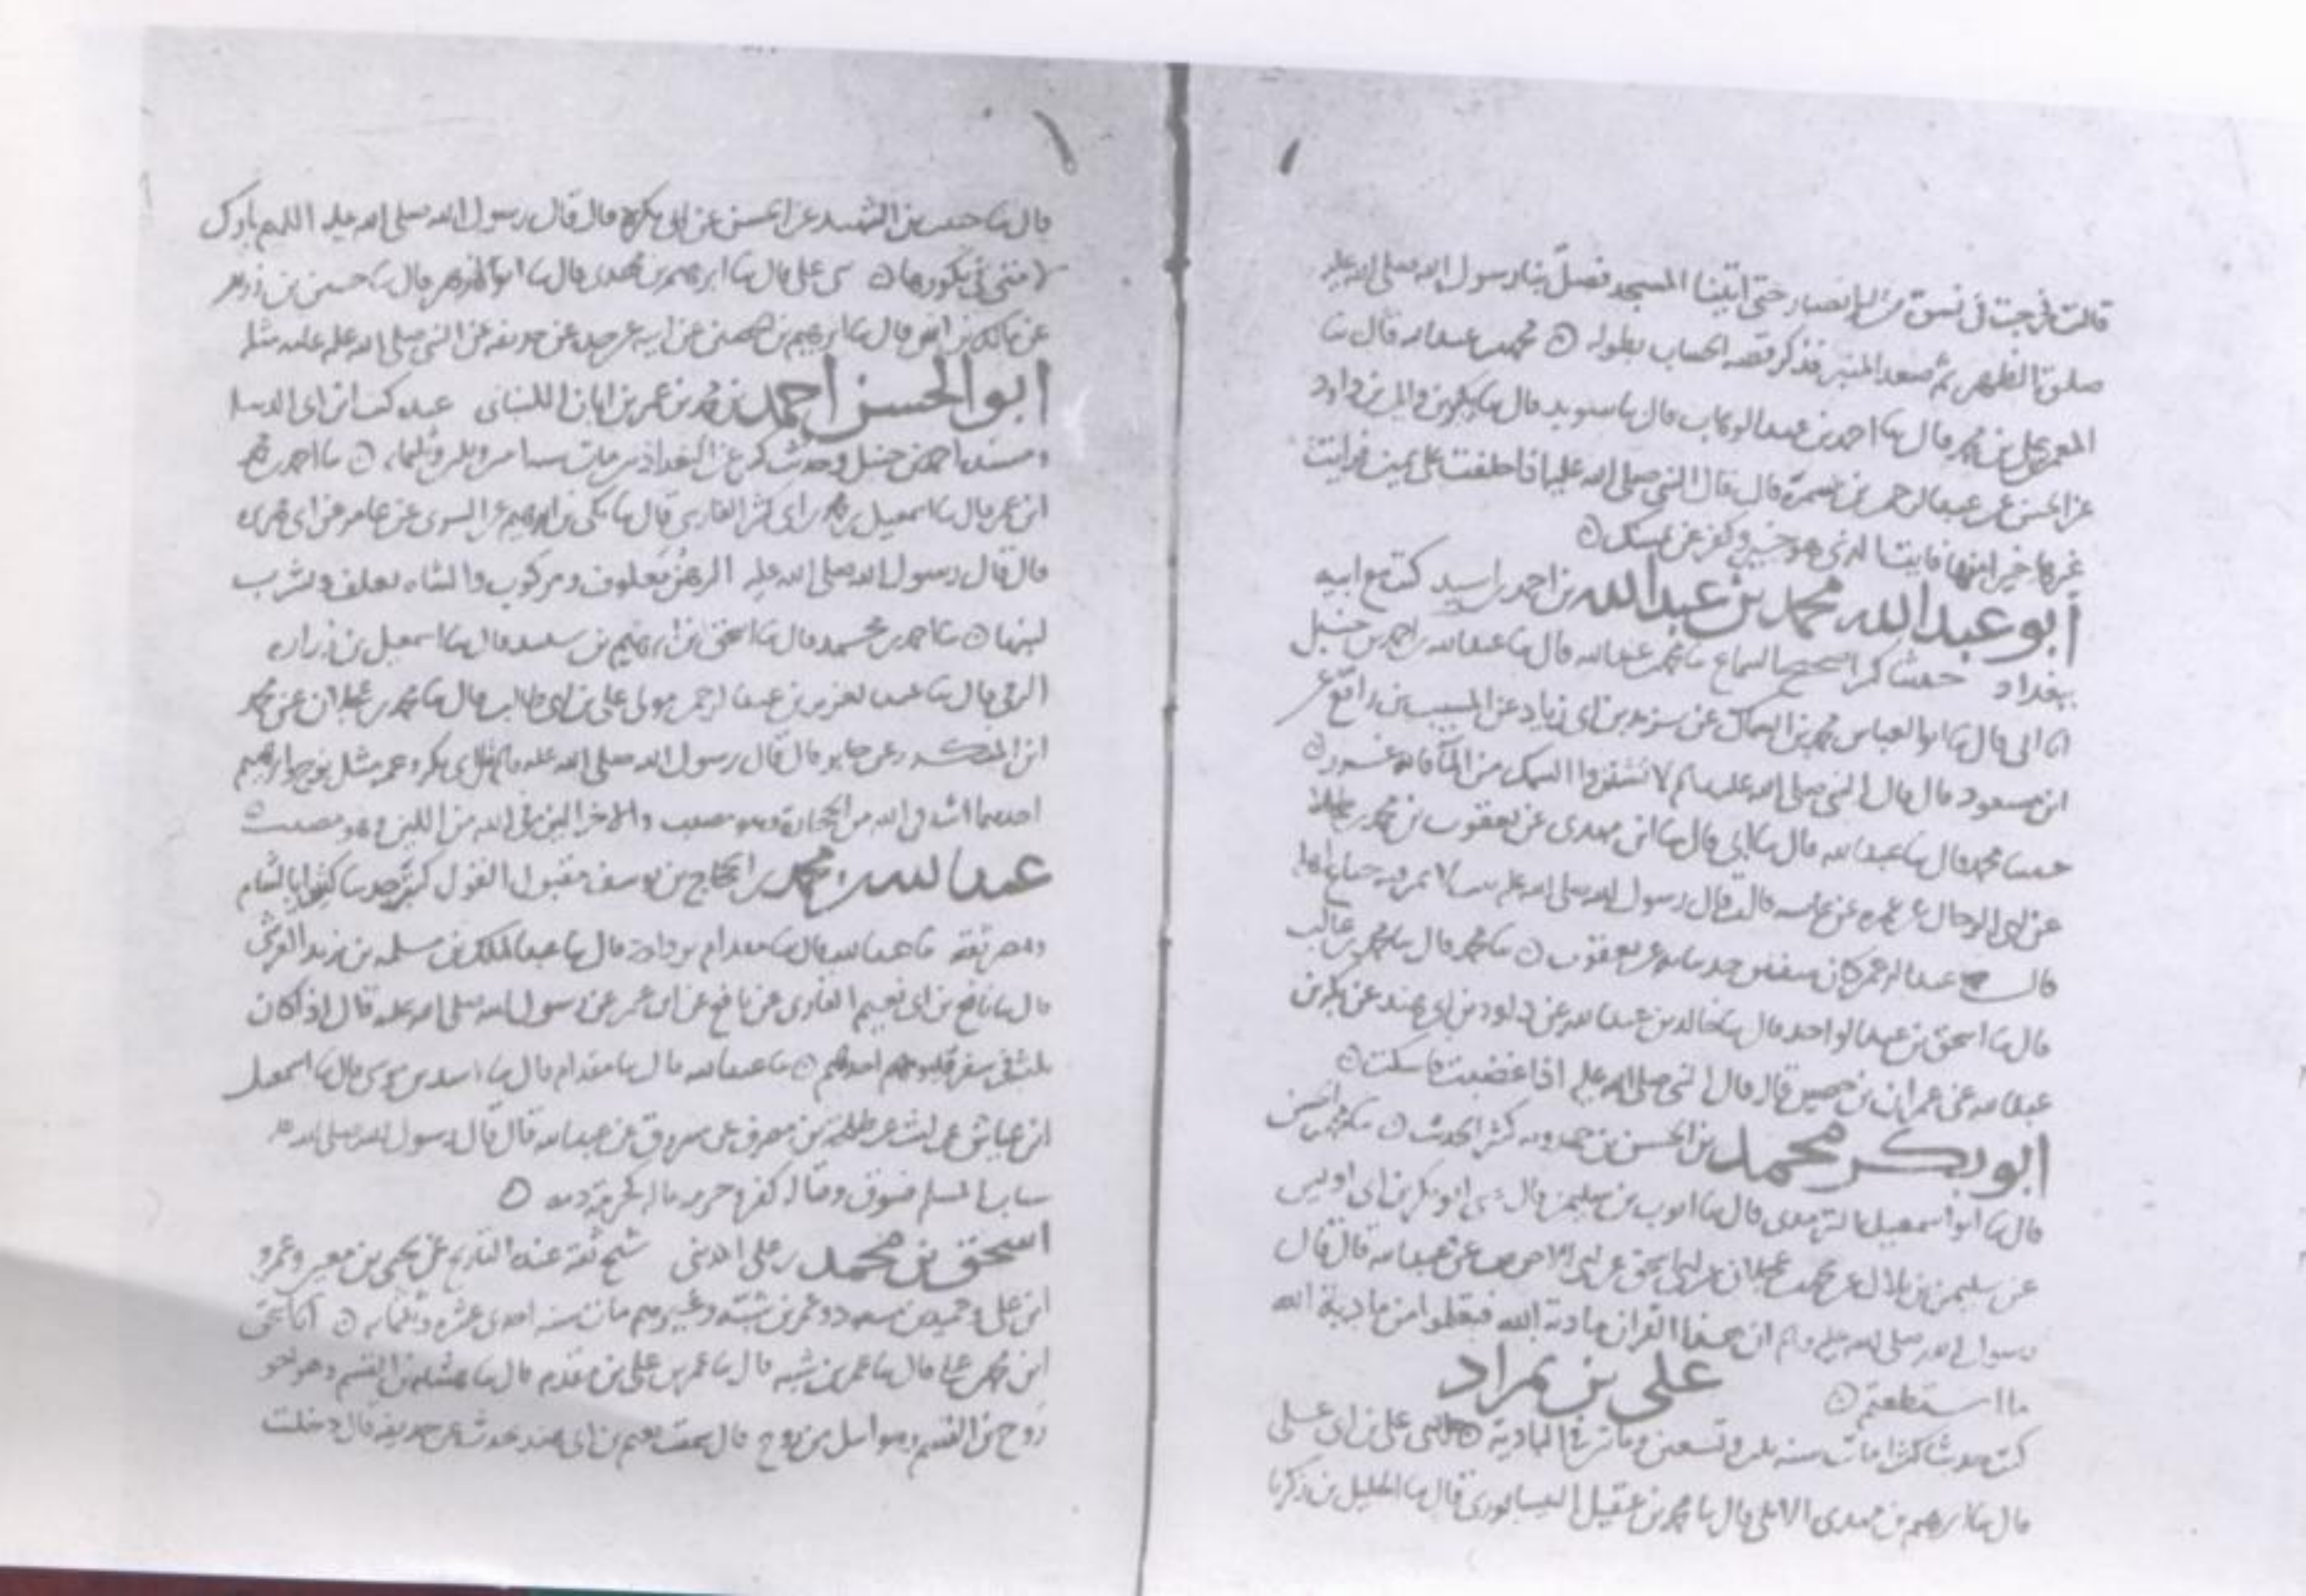 قالت فرجت في نسوة من الانصار حتى اتينا المسجد فصلى بنا رسول الله صلى الله عليه
صلوة الظهر ثم صعد المنبر فذكر قصه بطوله ٥ محمد بن عبد الله قال ثنا
بن محمد قال ثنا احمد بن عبد الوهاب قال ثنا سويد قال ثنا بن داود
عن الحسن عن عبد الرحمن بن سمرة قال قال النبي صلى الله عليه اذا حلفت على يمين فرايت
غيرها خيرا منها فايت الذي هو خير وكفر عن يمينك ٥
ابو عبد الله محمد بن عبد الله بن احمد بن اسيد كتب مع ابيه
ببغداد حديثا كثيرا صحيح السماع ثنا محمد بن عبد الله قال ثنا عبد الله بن احمد بن حنبل
ابي قال ثنا ابو العباس محمد بن السماك عن يزيد بن ابي زياد عن المسيب بن رافع عن
ابن مسعود قال قال النبي صلى الله عليه وسلم لا تشتروا السمك من الماء فانه غرر ٥
حدثنا محمد قال ثنا عبد الله قال ثنا ابي قال ثنا ابن مهدي عن يعقوب بن محمد بن طحلا
عن ابي الرجال عن عمره عن عايشه قالت قال رسول الله صلى الله عليه بيت لا تمر فيه جياع اهله
قال عبد الرحمن كان سفين حدثنا به عن يعقوب ٥ ثنا محمد قال ثنا محمد بن غالب
قال ثنا اسحق بن عبد الواحد قال ثنا خالد بن عبد الله عن داود بن ابي هند عن بكر بن
عبد الله عن عمران بن حصين قال قال النبي صلى الله عليه اذا غضبت فاسكت ٥
ابو بكر محمد بن الحسن بن كثير الحديث ٥ ثنا محمد بن الحسن
قال ثنا ابو اسمعيل الترمذي قال ثنا ايوب بن سليمن قال ثني ابو بكر بن ابي اويس
عن سليمن بن بلال عن محمد بن عجلان عن ابي اسحق عن ابي الاحوص عن عبد الله قال قال
رسول الله صلى الله عليه وسلم ان هذا القران مادبة الله فتعلموا من مادبة الله
ما استطعتم ٥ علي بن مراد
كتب حديثا كثيرا مات سنه وتسعين ومات في البادية ٥ علي بن ابي علي
قال ثنا ابرهيم بن مهدي الابلي قال ثنا محمد بن عقيل النيسابوري قال ثنا الخليل بن زكريا
قال ثنا حبيب بن الشهيد عن الحسن عن ابي بكره قال قال رسول الله صلى الله عليه اللهم بارك
لامتي في بكورها ٥ علي قال ثنا ابرهيم بن مهدي قال ثنا ابو قال ثنا حسين بن
عن مالك بن انس قال ثنا ابرهيم بن عن ابيه عن جده عن حذيفه عن النبي صلى الله عليه مثله
ابو الحسن احمد بن محمد بن عمر بن ابان اللنباني عنده كتب ابن ابي الدنيا
ومسند احمد بن حنبل وحديث كثير عن البغداديين مات سنه وثلثمايه ٥ ثنا احمد بن محمد
ابن عمر قال ثنا اسمعيل بن محمد بن ابي كثير الفارسي قال ثنا مكي بن ابرهيم عن عن عامر عن ابي هريره
قال قال رسول الله صلى الله عليه الرهن معلوف ومركوب والشاه تعلف وتشرب
لبنها ٥ ثنا احمد بن محمد قال ثنا اسحق بن ابرهيم بن سعيد قال ثنا اسمعيل بن زراره
الرقي قال ثنا عبد العزيز بن عبد الرحمن مولى علي بن ابي طالب قال ثنا محمد بن عجلان عن محمد
ابن المنكدر عن جابر قال قال رسول الله صلى الله عليه وسلم مثل ابي بكر وعمر مثل نوح وابرهيم
احدهما اشد في الله من الحجارة وهو مصيب والاخر الين في الله من اللبن وهو مصيب ٥
عبد الله بن محمد بن الحجاج بن يوسف مقبول القول كثير حديثه كتب بالشام
ومصر ثقه ثنا عبد الله قال ثنا مقدام بن داود قال ثنا عبد الملك بن مسلمه بن يزيد القرشي
قال ثنا نافع بن ابي نعيم القاري عن نافع عن ابن عمر عن رسول الله صلى الله عليه قال اذا كان
ثلثة في سفر فليؤمهم احدهم ٥ ثنا عبد الله قال ثنا مقدام قال ثنا اسد بن موسى قال ثنا اسمعيل
ابن عياش عن ليث عن طلحة بن مصرف عن مسروق عن عبد الله قال قال رسول الله صلى الله عليه
سباب المسلم فسوق وقتاله كفر وحرمه ماله كحرمة دمه ٥
اسحق بن محمد بن علي المديني شيخ ثقة عنده التاريخ عن يحيى بن معين وعمرو
ابن علي وحميد بن مسعده وعمر بن شبه وغيرهم مات سنه احدى عشره وثلثمايه ٥ ثنا اسحق
ابن محمد بن علي قال ثنا عمر بن شبه قال ثنا عمر بن علي بن مقدم قال ثنا هشام بن القسم وهو اخو
روح بن القسم قال سمعت نعيم بن ابي هند يحدث عن حذيفه قال دخلت